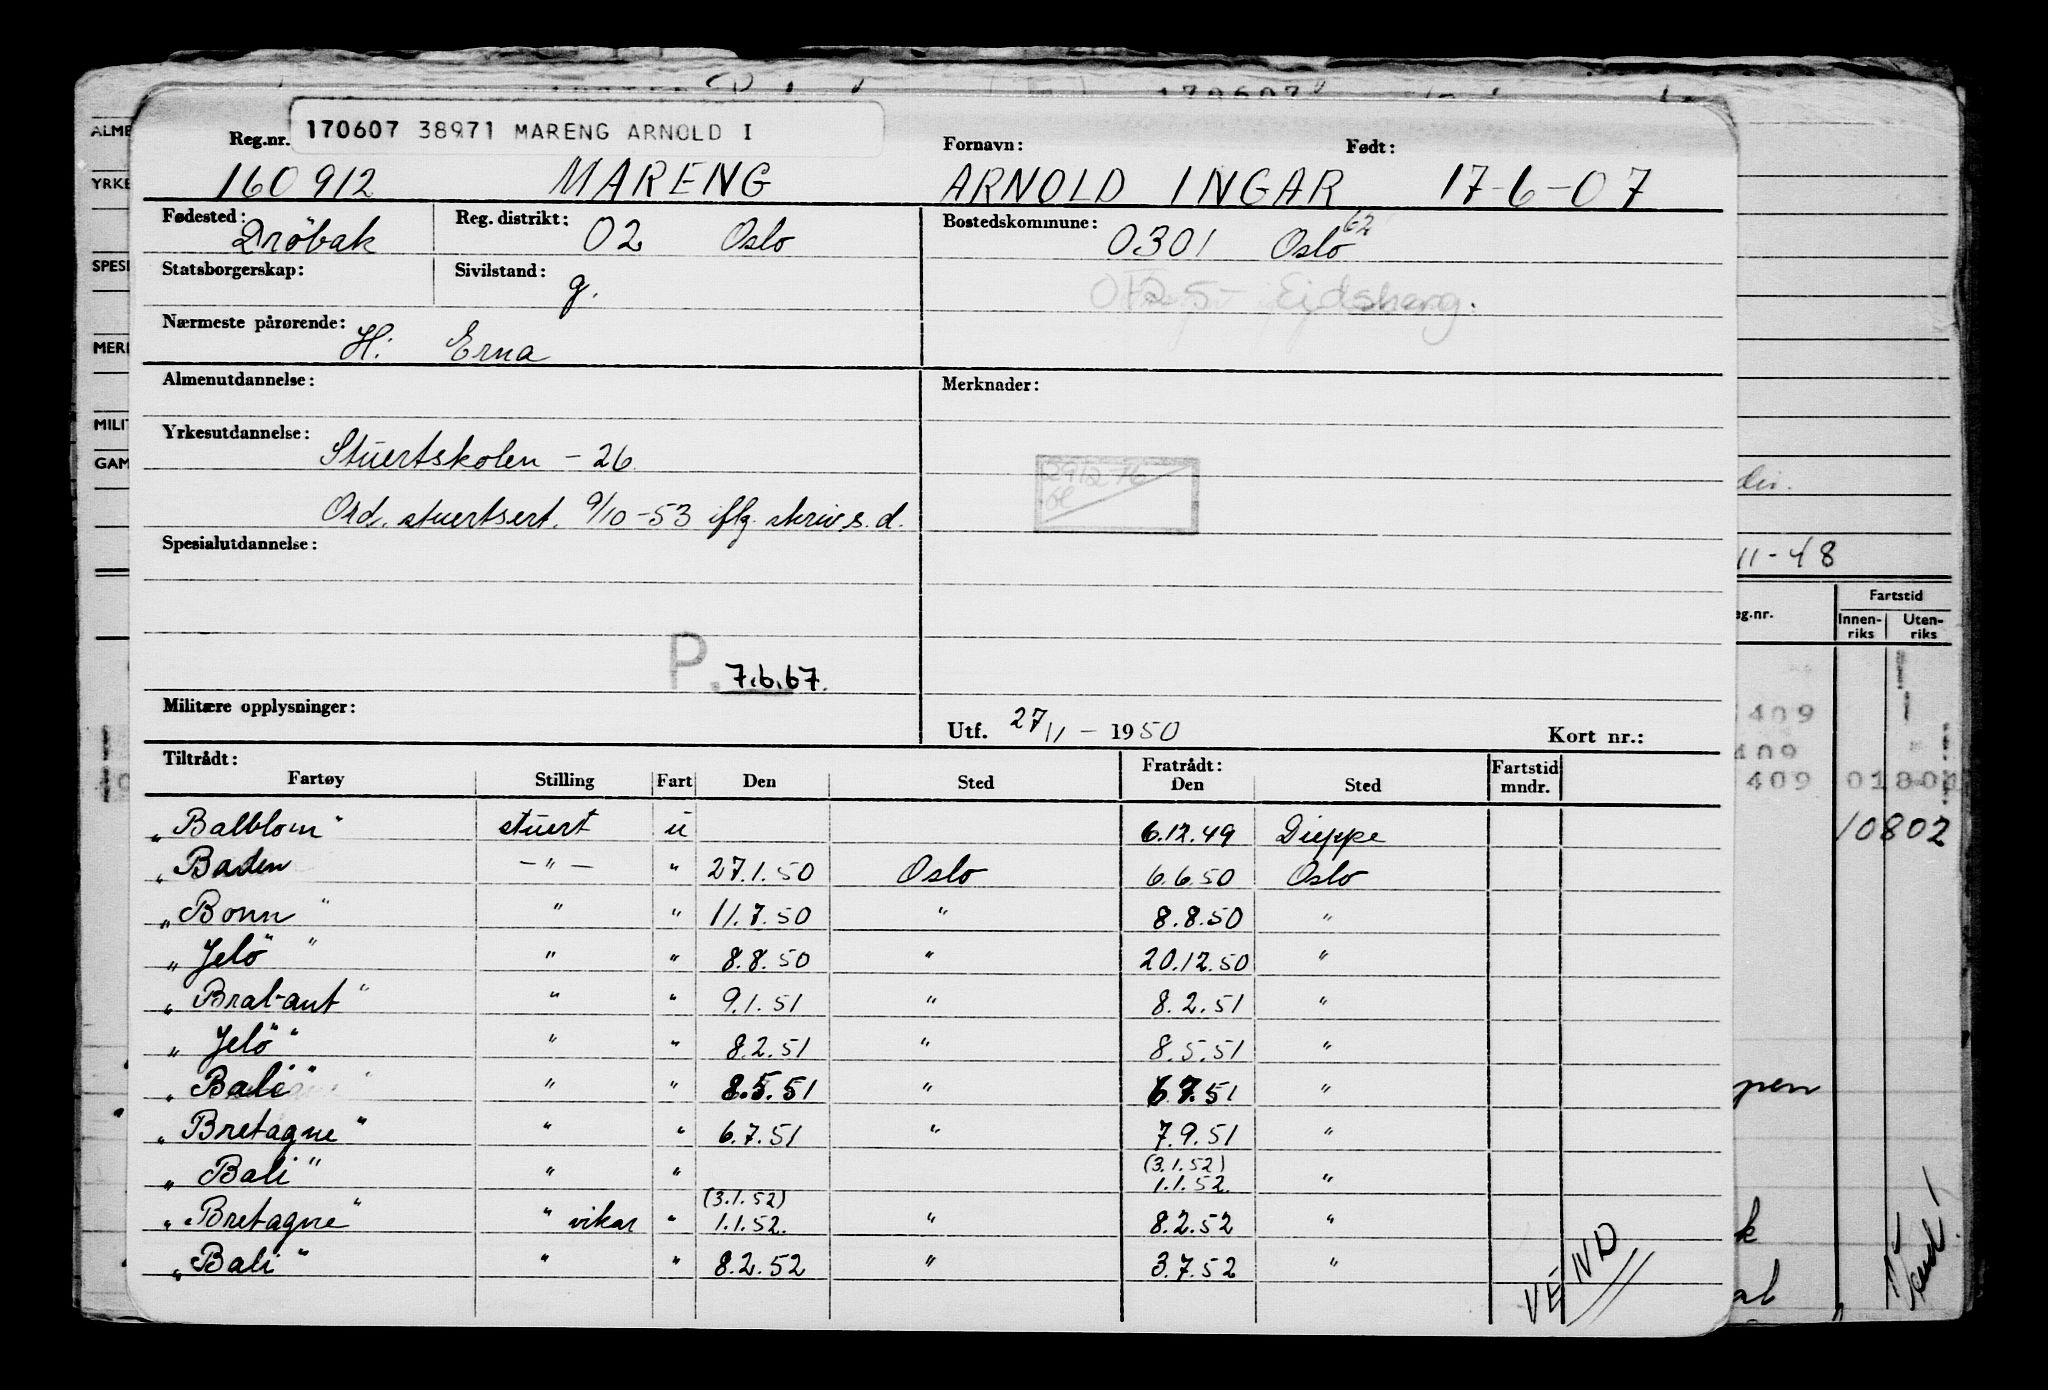 170607 38971 MARENG ARNOLD I
Reg.nr. Fornavn: Født:
160912 MARENG ARNOLD INGAR 17-6-07
Fødested: Drøbak Reg. distrikt: 02 Oslo Bostedskommune: 0301 Oslo 62
Statsborgerskap: Sivilstand: g. Eidsberg.
Nærmeste pårørende: H: Erna
Almenutdannelse: Merknader:
Yrkesutdannelse: Stuertskolen - 26
Ord. stuertsert. 9/10-53 iflg. skriv s.d.
Spesialutdannelse:
P. 7.6.67.
Militære opplysninger: Utf. 27/11 - 1950 Kort nr.:
Tiltrådt: Fratrådt: Fartstid
Fartøy Stilling Fart Den Sted Den Sted mndr.
"Balblom" stuert u 6.12.49 Dieppe
"Baden - " - " 27.1.50 Oslo 6.6.50 Oslo
"Bonn" " " 11.7.50 " 8.8.50 "
"Jelö" " " 8.8.50 " 20.12.50 "
"Brabant" " " 9.1.51 " 8.2.51 "
"Jelö" " " 8.2.51 " 8.5.51 "
"Bali" " " 8.5.51 " 6.7.51 "
"Bretagne" " " 6.7.51 " 7.9.51 "
"Bali" " " (3.1.52) 1.1.52. "
"Bretagne" " vikar " (3.1.52) 1.1.52. " 8.2.52 "
"Bali" " " 8.2.52 " 3.7.52 "
VEND
ALME
YRKE
SPESI
MERI
MILIT
GAM
dir.
11-48
eg.nr. Fartstid
Innen-riks Uten-riks
409
409
409 01801
10802
pen
k
al
Vend